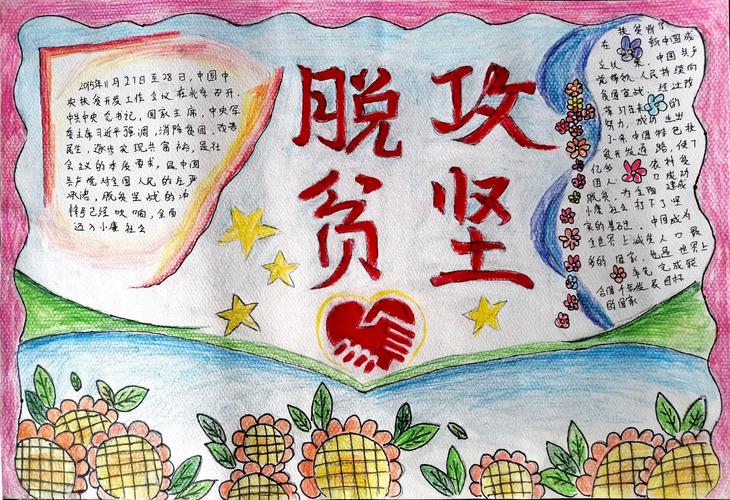 脱 攻
贫 坚
2015年11月27日至28日,中国中
央扶贫开发工作会议在北京召开,
中共中央总书记,国家主席,中央军
委主席习近平强调,消除贫困、改善
民生,逐步实现共富裕,是社
会主义的本质要求,是中国
共产党对全国人民的庄严
承诺,脱贫坚战的冲
锋号已经吹响,全面
迈入小康社会
扶贫
在 新中国成
立以来,中国共产
党带领人民持续向
贫困宣战 经过改
革37年来 的
努力,成功走出
了一条中国特色扶
贫开发道路,使7
亿多 农村贫
困人 口成功
脱贫,为全面 建成
小康社会打下了坚
实的基础,中国成为
全世界上减贫人口最
多的国家,也是世界上
率先完成联
合国千年发展目标
的国家